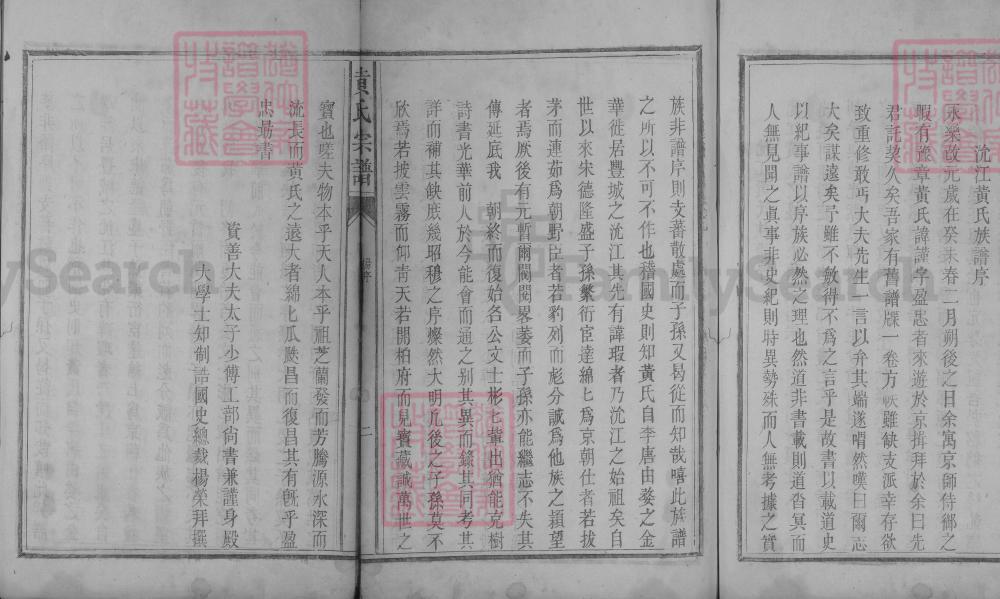 沇江黃氏族譜序
永樂改元歲在癸未春二月朔後之日余寓京師侍鄉之
暇有豫章黃氏諱謹字盈忠者來遊於京揖拜於余曰先
君託契久矣吾家有舊譜牒一卷方帙雖缺支派幸存欲
致重修敢丐大夫先生一言以弁其端遂喟然嘆曰爾志
大矣謀遠矣予雖不敏得不為之言乎是故書以載道史
以紀事譜以序族必然之理也然道非書載則道沓冥而
人無見聞之真事非史紀則時異勢殊而人無考據之實
族非譜序則支蕃散處而子孫又曷從而知哉嘻此族譜
之所以不可不作也稽國史則知黃氏自李唐由婺之金
華徙居豐城之沇江其先有諱瑕者乃沇江之始祖矣自
世以來宋德隆盛子孫繁衍宦達綿匕為京朝仕者若拔
茅而連茹為朝野臣者若豹列而彪分誠為他族之顒望
者焉厥後有元暫爾閥閱畧萎而子孫亦能繼志不失其
傳延底我　朝終而復始各公文士彬匕輩出猶能克樹
詩書光華前人於今能會而通之别其異而錄其同考其
詳而補其缺庶幾昭穆之序燦然大明凡後之子孫莫不
欣焉若披雲霧而仰青天若開柏府而見寶藏誠萬世之
黃氏宗譜
楊序
二
寶也嗟夫物本乎天人本乎祖芝蘭發而芳騰源水深而
流長而黃氏之遠大者綿匕瓜瓞昌而復昌其有旣乎盈
忠勗書
資善大夫太子少傅工部尙書兼謹身殿
大學士知制誥國史總裁楊榮拜撰